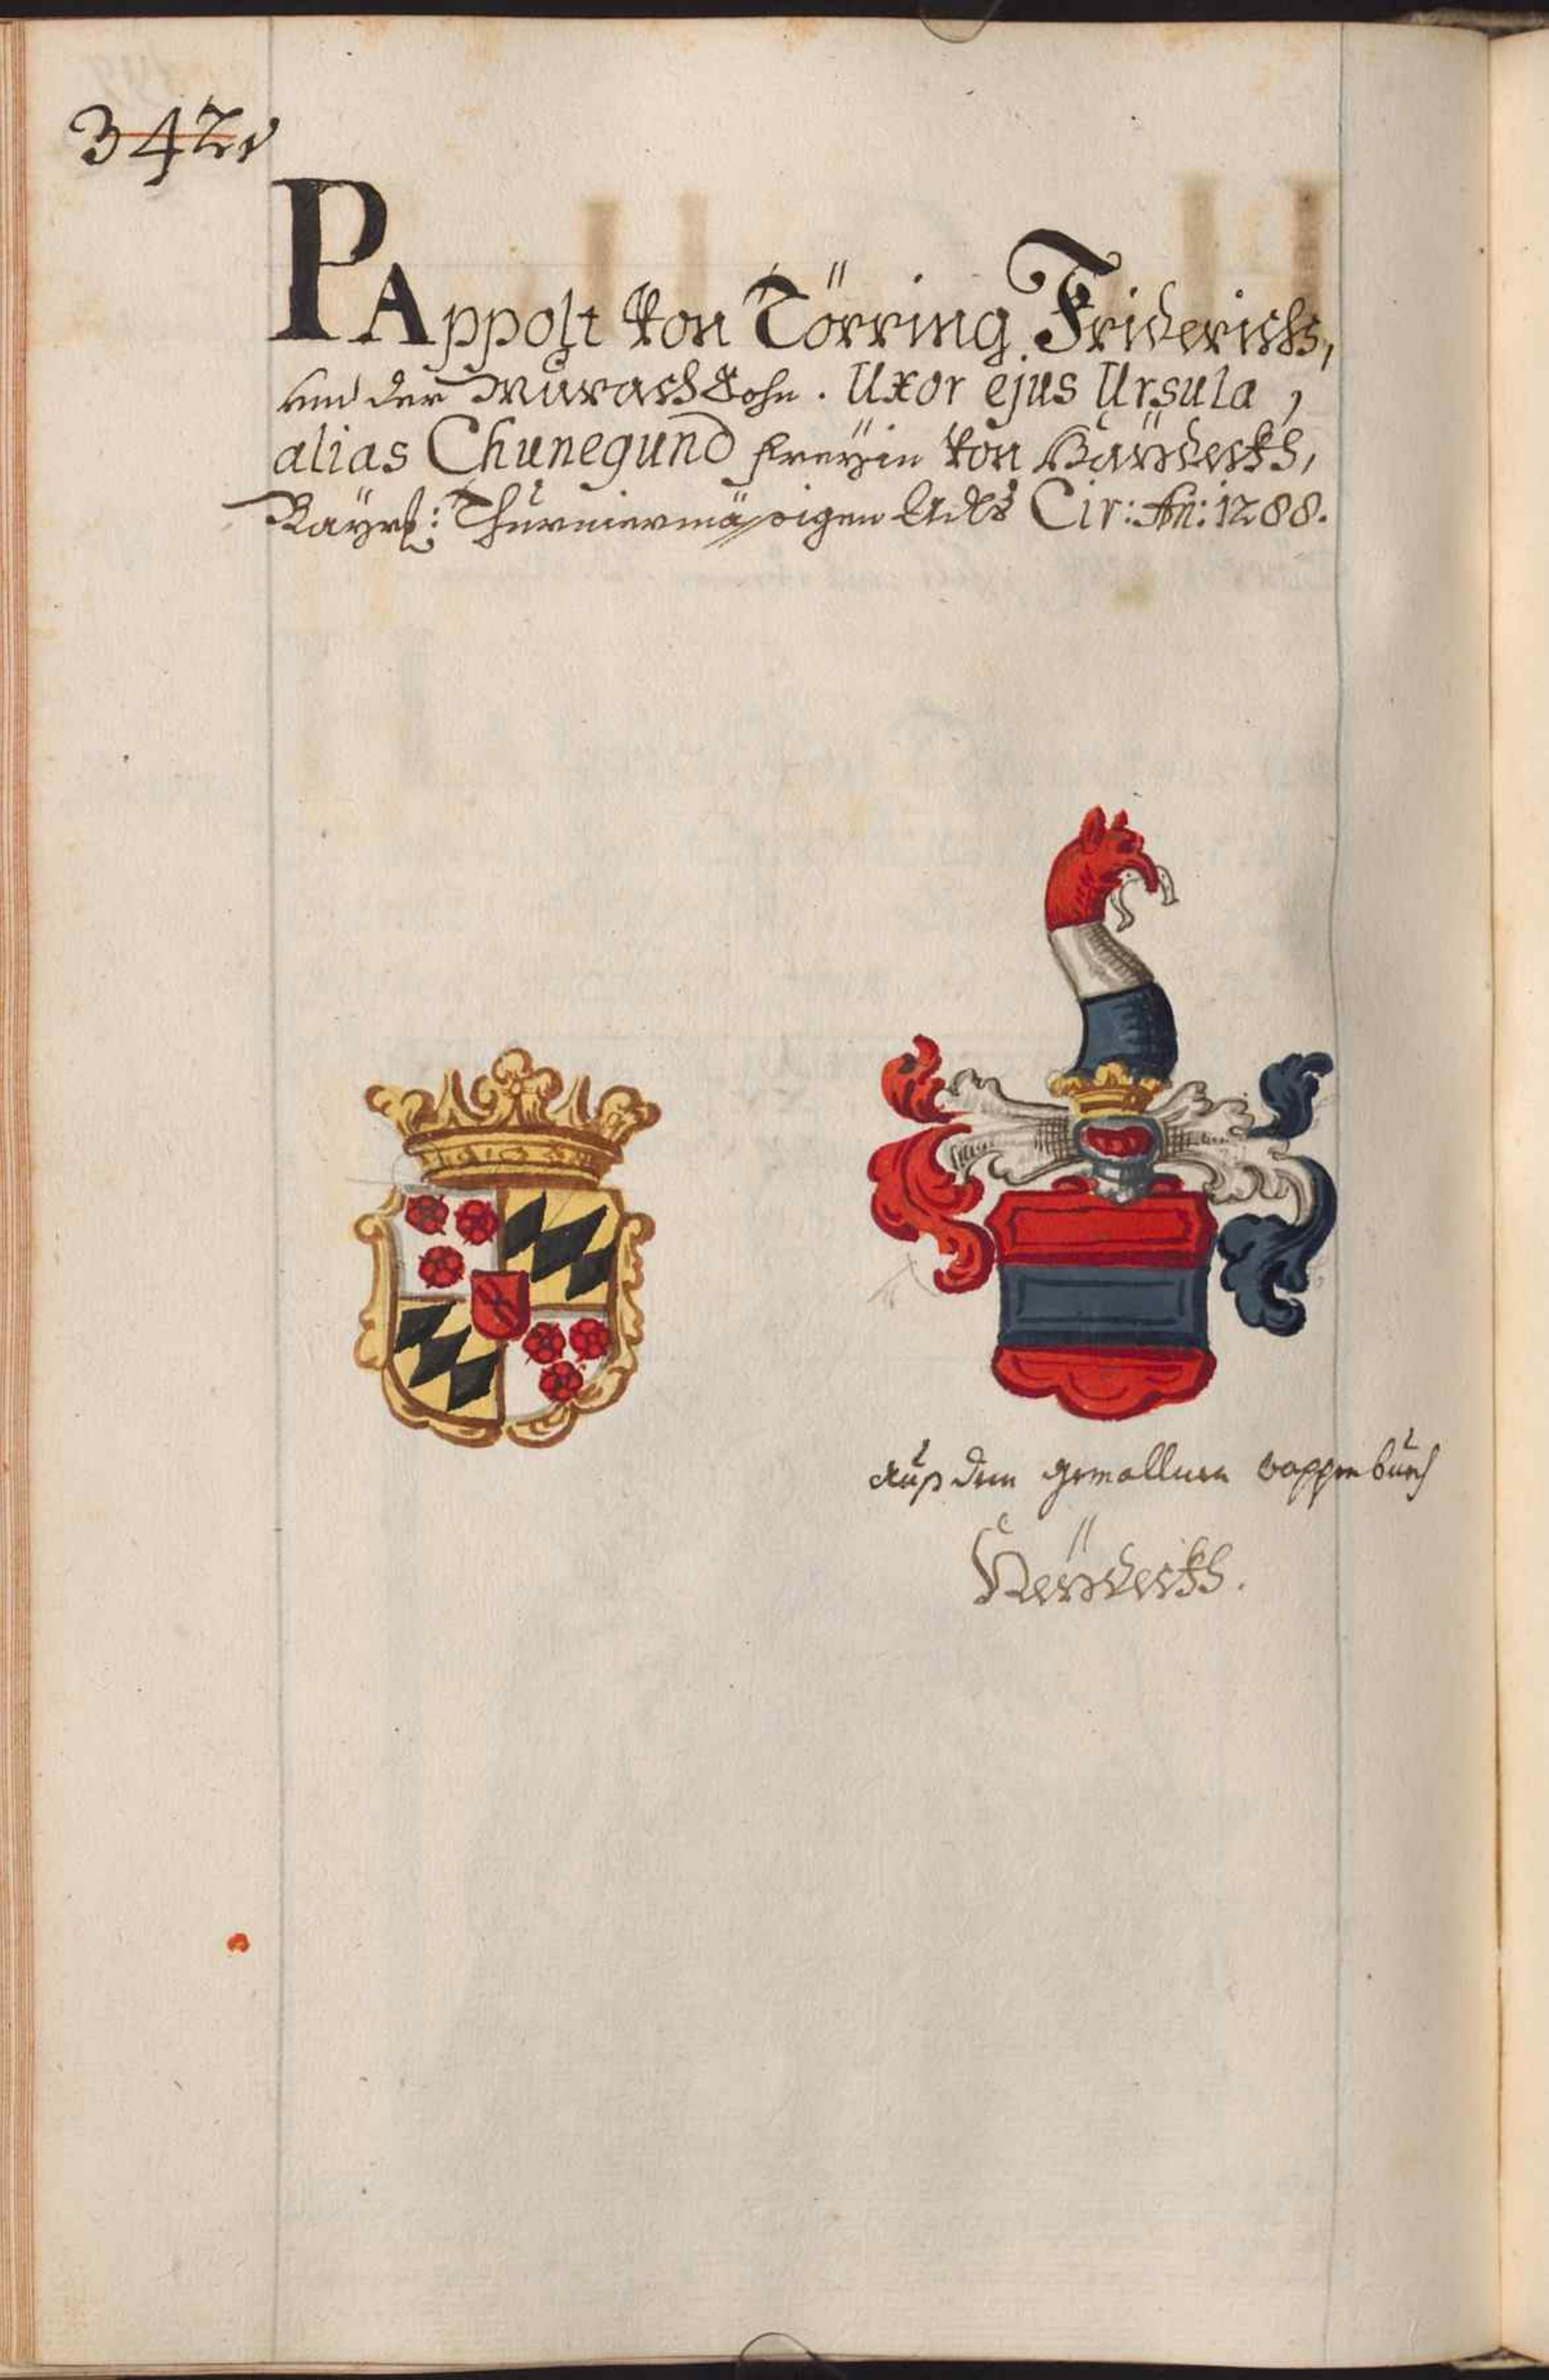 342v
PAppolt von Törring Friderichs,
und der Murach Sohn. Uxor ejus Ursula,
alias Chunegund freÿin von
Baÿrl: Thurniermässigen Adls Cir: An: 1288.
auß dem gemallnen wappenbuch